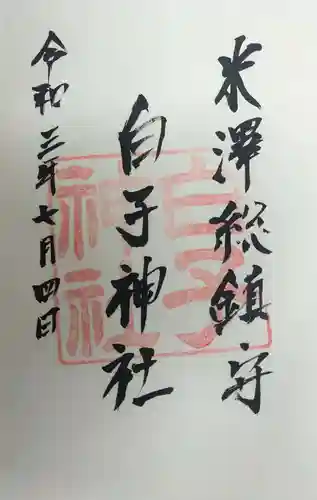 米澤総鎮守
白子神社
令和三年七月四日
白子
神社